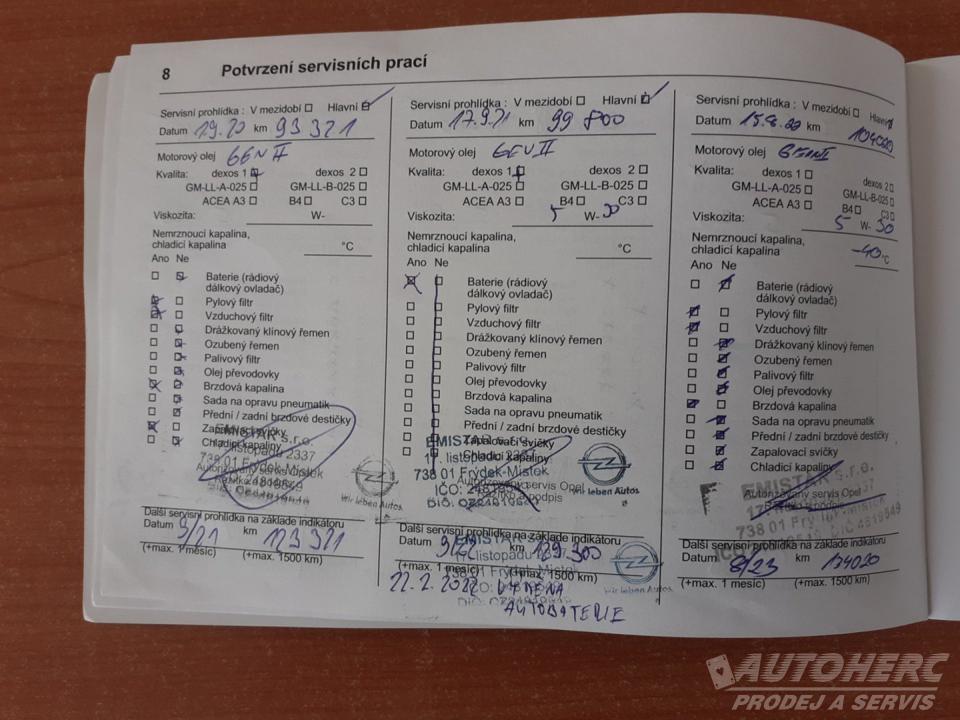 8 Potvrzení servisních prací
Servisní prohlídka : V mezidobí Hlavní
Datum km 93 321
Motorový olej GEN II
Kvalita: dexos 1 dexos 2
GM-LL-A-025 GM-LL-B-025
ACEA A3 B4 C3
Viskozita: W-
Nemrznoucí kapalina,
chladicí kapalina °C
Ano Ne
Baterie (rádiový
dálkový ovladač)
Pylový filtr
Vzduchový filtr
Drážkovaný klínový řemen
Ozubený řemen
Palivový filtr
Olej převodovky
Brzdová kapalina
Sada na opravu pneumatik
Přední / zadní brzdové destičky
Zapalovací svíčky
Chladicí kapaliny
EMISTAR s.r.o.
listopadu 2337
738 01 Frýdek-Místek
Autorizovaný servis Opel
Wir leben Autos
Další servisní prohlídka na základě indikátoru
Datum 9/21 km 123 321
(+max. 1 měsíc) (+max. 1500 km)
Servisní prohlídka : V mezidobí Hlavní
Datum 17.9.21 km 99 800
Motorový olej GEN II
Kvalita: dexos 1 dexos 2
GM-LL-A-025 GM-LL-B-025
ACEA A3 B4 C3
Viskozita: 5 W- 30
Nemrznoucí kapalina,
chladicí kapalina °C
Ano Ne
Baterie (rádiový
dálkový ovladač)
Pylový filtr
Vzduchový filtr
Drážkovaný klínový řemen
Ozubený řemen
Palivový filtr
Olej převodovky
Brzdová kapalina
Sada na opravu pneumatik
Přední / zadní brzdové destičky
Zapalovací svíčky
Chladicí kapaliny
EMISTAR s.r.o.
17. listopadu 2337
738 01 Frýdek-Místek
Autorizovaný servis Opel
Wir leben Autos
Další servisní prohlídka na základě indikátoru
Datum 9/22 km 129 300
(+max. 1 měsíc) (+max. 1500 km)
Wir leben Autos
22. 2. 2022 VÝMĚNA
AUTOBATERIE
Servisní prohlídka : V mezidobí Hlavní
Datum km 104020
Motorový olej
Kvalita: dexos 1 dexos 2
GM-LL-A-025 GM-LL-B-025
ACEA A3 B4 C3
Viskozita: 5 W- 30
Nemrznoucí kapalina,
chladicí kapalina -40 °C
Ano Ne
Baterie (rádiový
dálkový ovladač)
Pylový filtr
Vzduchový filtr
Drážkovaný klínový řemen
Ozubený řemen
Palivový filtr
Olej převodovky
Brzdová kapalina
Sada na opravu pneumatik
Přední / zadní brzdové destičky
Zapalovací svíčky
Chladicí kapaliny
EMISTAR s.r.o.
Autorizovaný servis Opel
Další servisní prohlídka na základě indikátoru
Datum 8/23 km 134020
(+max. 1 měsíc) (+max. 1500 km)
AUTOHERC
PRODEJ A SERVIS